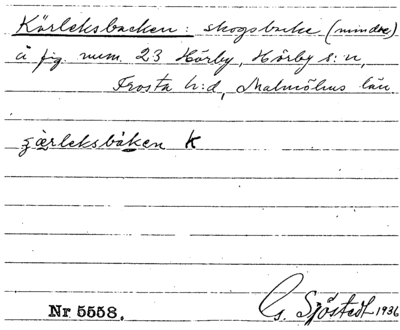 Kärleksbacken: skogsbacke (mindre)
å fig. num. 23 Hörby, Hörby s:n,
Frosta h:d, Malmöhus län
ȥærleksbáken K
Nr 5558. G. Sjöstedt 1936